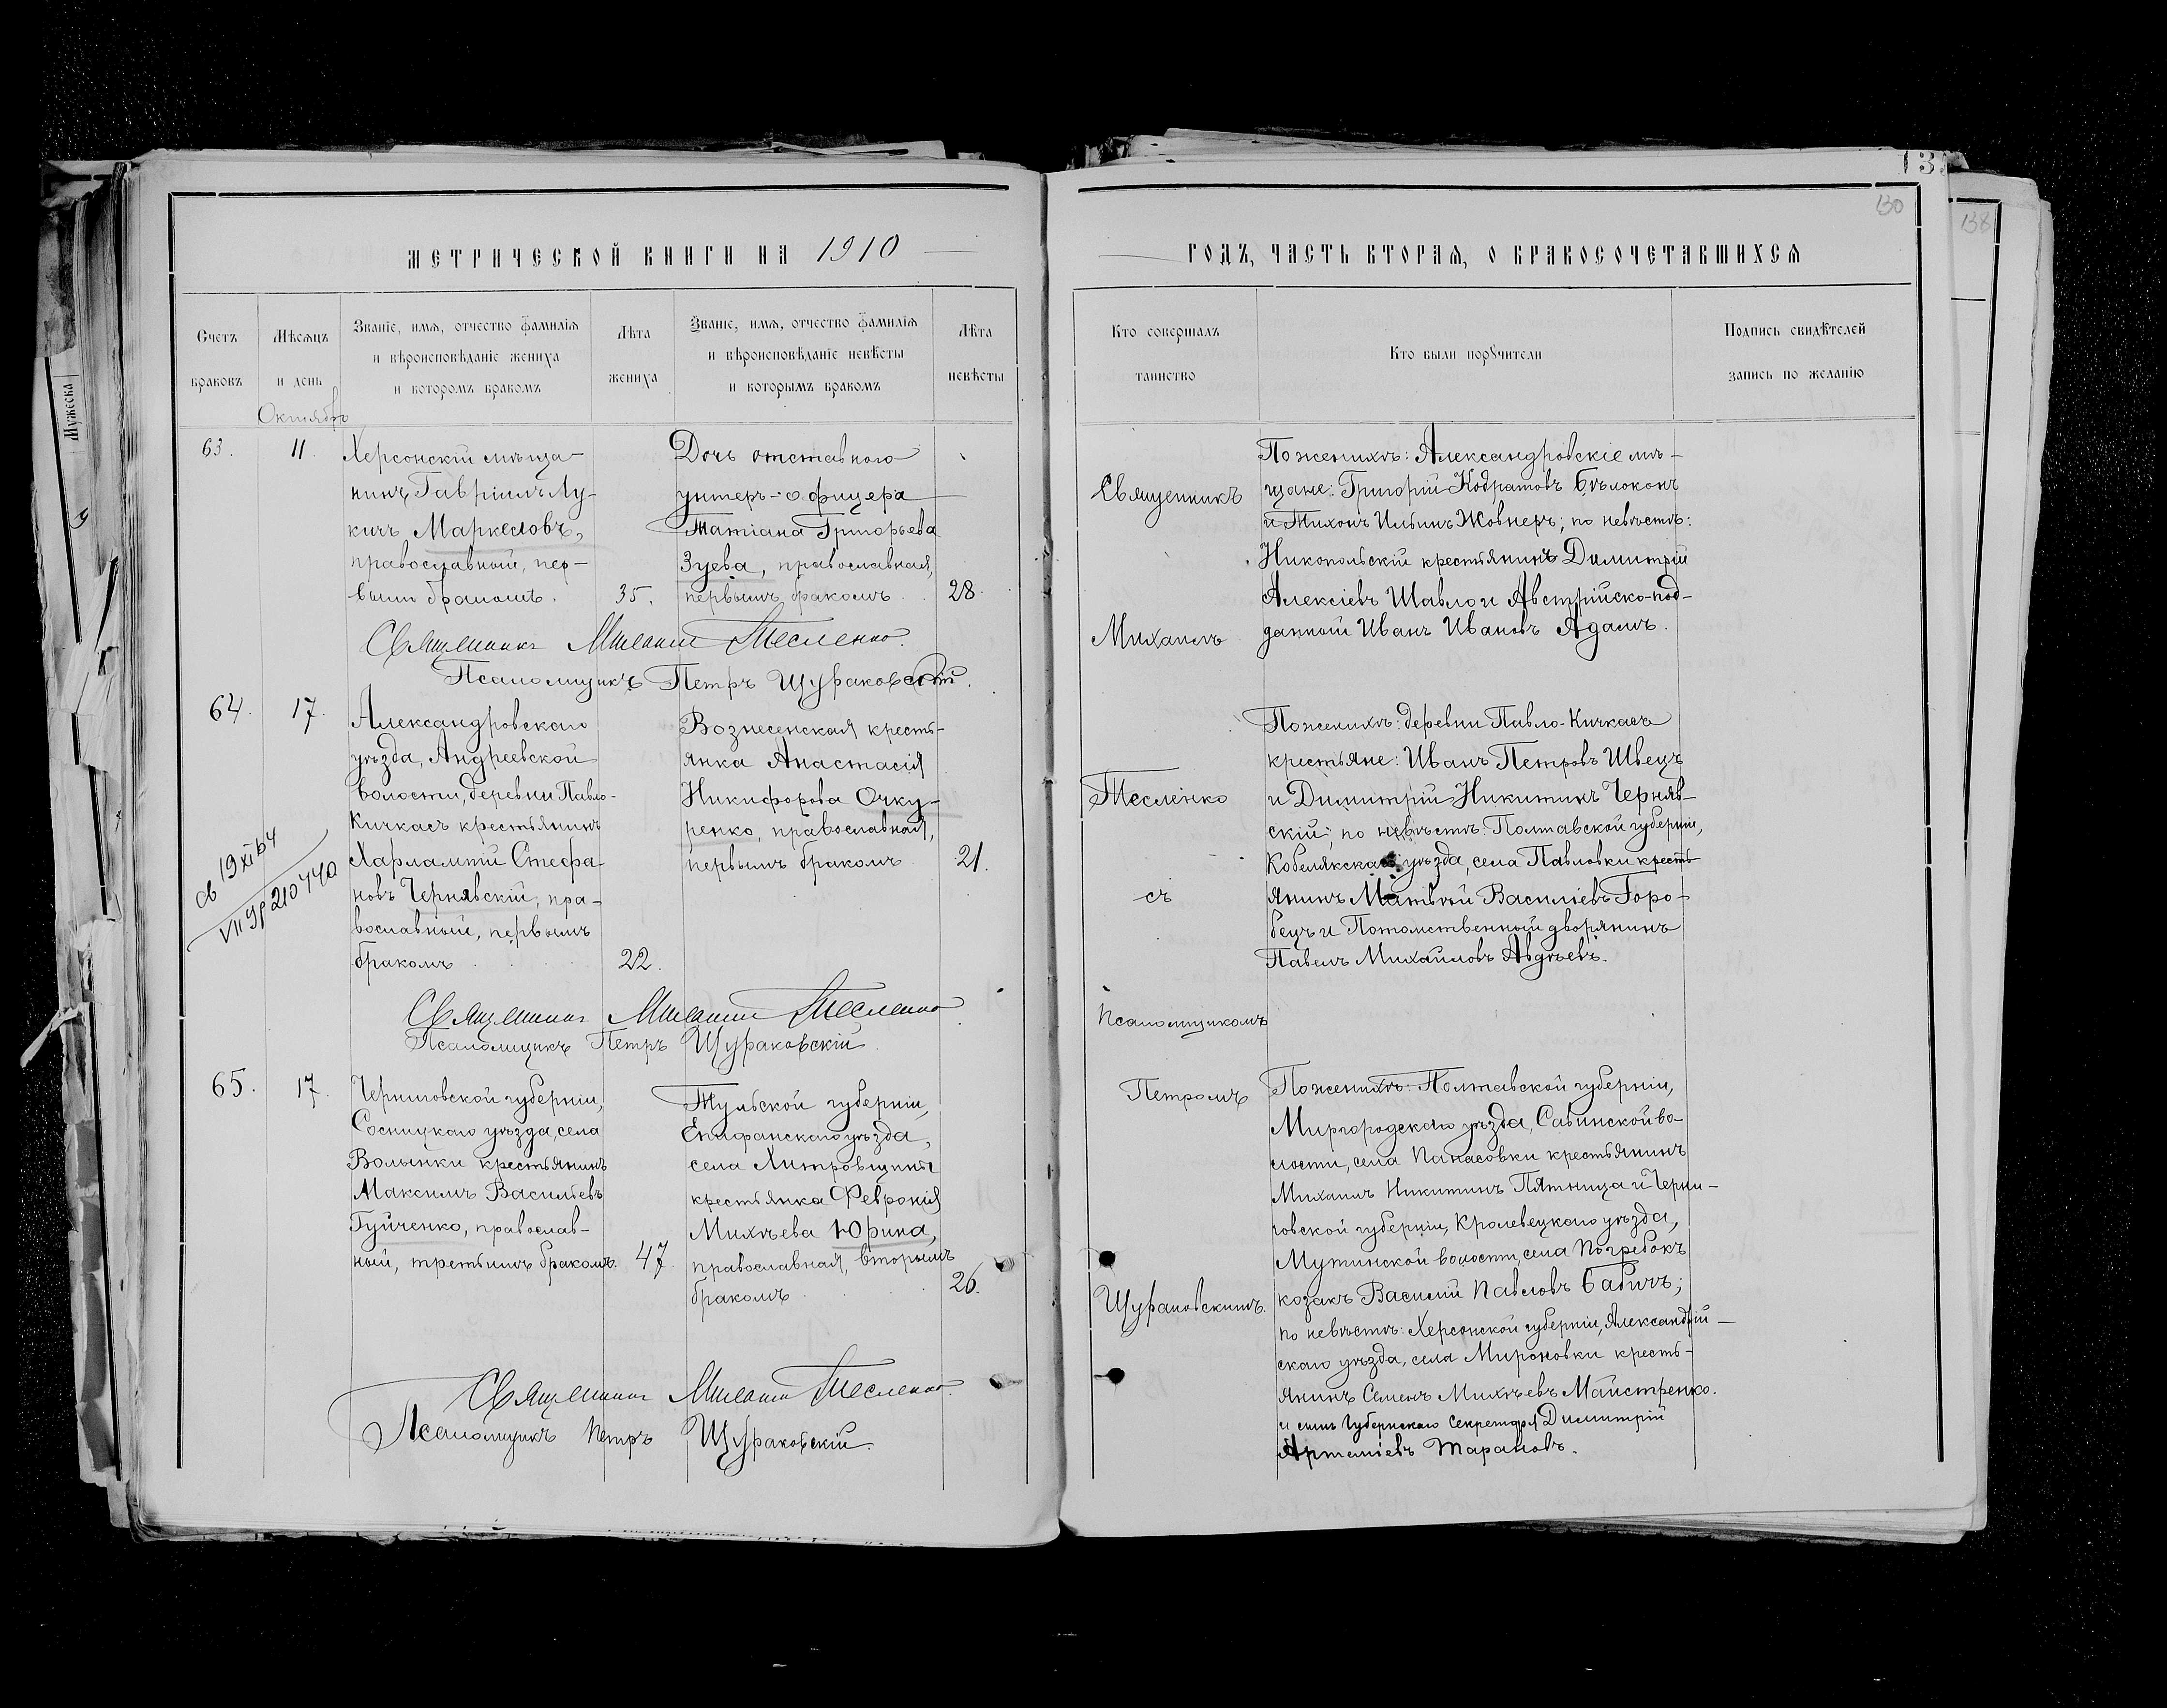 МЕТРИЧЕСКОЙ КНИГИ НА 1910
Счетъ браковъ
Мѣсяцъ и день
Званіе, имя, отчество фамилія
и вѣроисповѣданіе жениха
и которомъ бракомъ
Лѣта жениха
Званіе, имя, отчество фамилія
и вѣроисповѣданіе невѣсты
и которымъ бракомъ
Лѣта невѣсты
Октябрь
63. 11.
Херсонскій мѣща-
нинъ Гавріилъ Лу-
кичъ Маркеловъ,
православный, пер-
вымъ бракомъ. 35.
Дочь отставного
унтеръ-офицера
Татіана Григорьева
Зуева, православная,
первымъ бракомъ. 28.
Священникъ Михаилъ Тесленко.
Псаломщикъ Петръ Щураковскій.
64. 17.
Александровскаго
уѣзда, Андреевской
волости, деревни Павло-
Кичкасъ крестьянинъ
Харлампій Стефа-
новъ Чернявскій, пра-
вославный, первымъ
бракомъ 22.
Вознесенская кресть-
янка Анастасія
Никифорова Очку-
ренко, православная,
первымъ бракомъ 21.
св 19 XI 64
VII УР 210440
Священникъ Михаилъ Тесленко
Псаломщикъ Петръ Щураковскій.
65. 17.
Черниговской губерніи,
Сосницкаго уѣзда, села
Волынки крестьянинъ
Максимъ Васильевъ
Гуйченко, православ-
ный, третьимъ бракомъ. 47.
Тульской губерніи,
Епифанскаго уѣзда,
села Хитровщины
крестьянка Февронія
Михѣева Юрина,
православная, вторымъ
бракомъ 26.
Священникъ Михаилъ Тесленко.
Псаломщикъ Петръ Щураковскій.
Мужеска
ГОДЪ, ЧАСТЬ ВТОРАЯ, О БРАКОСОЧЕТАВШИХСЯ
130
138
Кто совершалъ
таинство
Кто были поручители
Подпись свидѣтелей
запись по желанію
Священникъ
Михаилъ
Тесленко
съ
псаломщикомъ
Петромъ
Щураковскимъ.
По женихѣ: Александровскіе мѣ-
щане: Григорій Кодратовъ Бѣлоконь
и Тихонъ Ильинъ Жовнеръ; по невѣстѣ:
Никопольскій крестьянинъ Димитрій
Алексіевъ Шавло и Австрійско-под-
данный Иванъ Ивановъ Адамъ.
По женихѣ: деревни Павло-Кичкасъ
крестьяне: Иванъ Петровъ Швецъ
и Димитрій Никитинъ Черняв-
скій; по невѣстѣ: Полтавской губерніи,
Кобелякскаго уѣзда, села Павловки кресть-
янинъ Матвѣй Василіевъ Горо-
бецъ и Потомственный дворянинъ
Павелъ Михайловъ Авдѣевъ.
По женихѣ: Полтавской губерніи,
Миргородскаго уѣзда, Савинской во-
лости, села Панасовки крестьянинъ
Михаилъ Никитинъ Пятница и Черни-
говской губерніи, Кролевецкаго уѣзда,
Мутинской волости, села Погребокъ
козакъ Василій Павловъ Бабичъ;
по невѣстѣ: Херсонской губерніи, Александрій-
скаго уѣзда, села Мироновки кресть-
янинъ Семенъ Михѣевъ Майстренко.
и сынъ Губернскаго Секретаря Димитрій
Артеміевъ Тарановъ.